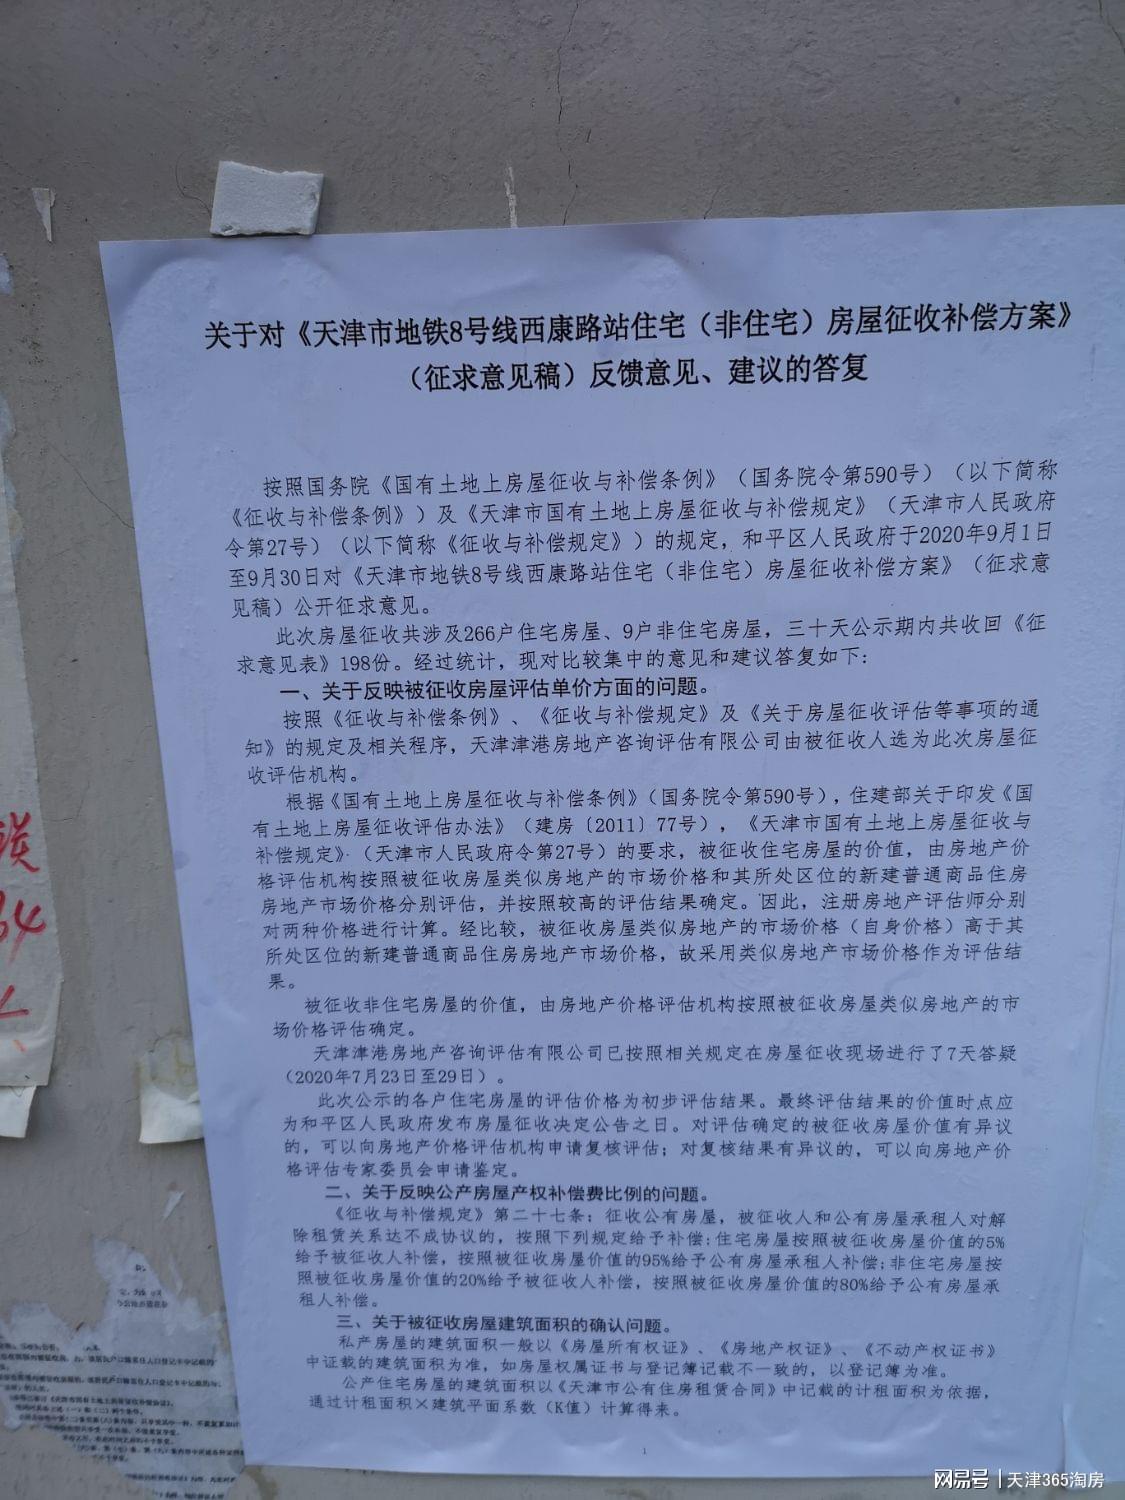 关于对《天津市地铁8号线西康路站住宅（非住宅）房屋征收补偿方案》
（征求意见稿）反馈意见、建议的答复
按照国务院《国有土地上房屋征收与补偿条例》（国务院令第590号）（以下简称
《征收与补偿条例》）及《天津市国有土地上房屋征收与补偿规定》（天津市人民政府
令第27号）（以下简称《征收与补偿规定》）的规定，和平区人民政府于2020年9月1日
至9月30日对《天津市地铁8号线西康路站住宅（非住宅）房屋征收补偿方案》（征求意
见稿）公开征求意见。
此次房屋征收共涉及266户住宅房屋、9户非住宅房屋，三十天公示期内共收回《征
求意见表》198份。经过统计，现对比较集中的意见和建议答复如下：
一、关于反映被征收房屋评估单价方面的问题。
按照《征收与补偿条例》、《征收与补偿规定》及《关于房屋征收评估等事项的通
知》的规定及相关程序，天津津港房地产咨询评估有限公司由被征收人选为此次房屋征
收评估机构。
根据《国有土地上房屋征收与补偿条例》（国务院令第590号），住建部关于印发《国
有土地上房屋征收评估办法》（建房〔2011〕77号），《天津市国有土地上房屋征收与
补偿规定》（天津市人民政府令第27号）的要求，被征收住宅房屋的价值，由房地产价
格评估机构按照被征收房屋类似房地产的市场价格和其所处区位的新建普通商品住房
房地产市场价格分别评估，并按照较高的评估结果确定。因此，注册房地产评估师分别
对两种价格进行计算。经比较，被征收房屋类似房地产的市场价格（自身价格）高于其
所处区位的新建普通商品住房房地产市场价格，故采用类似房地产市场价格作为评估结
果。
被征收非住宅房屋的价值，由房地产价格评估机构按照被征收房屋类似房地产的市
场价格评估确定。
天津津港房地产咨询评估有限公司已按照相关规定在房屋征收现场进行了7天答疑
（2020年7月23日至29日）。
此次公示的各户住宅房屋的评估价格为初步评估结果。最终评估结果的价值时点应
为和平区人民政府发布房屋征收决定公告之日。对评估确定的被征收房屋价值有异议
的，可以向房地产价格评估机构申请复核评估；对复核结果有异议的，可以向房地产价
格评估专家委员会申请鉴定。
二、关于反映公产房屋产权补偿费比例的问题。
《征收与补偿规定》第二十七条：征收公有房屋，被征收人和公有房屋承租人对解
除租赁关系达不成协议的，按照下列规定给予补偿：住宅房屋按照被征收房屋价值的5%
给予被征收人补偿，按照被征收房屋价值的95%给予公有房屋承租人补偿；非住宅房屋按
照被征收房屋价值的20%给予被征收人补偿，按照被征收房屋价值的80%给予公有房屋承
租人补偿。
三、关于被征收房屋建筑面积的确认问题。
私产房屋的建筑面积一般以《房屋所有权证》、《房地产权证》、《不动产权证书》
中证载的建筑面积为准，如房屋权属证书与登记簿记载不一致的，以登记簿为准。
公产住宅房屋的建筑面积以《天津市公有住房租赁合同》中记载的计租面积为依据，
通过计租面积×建筑平面系数（K值）计算得来。
1
网易号 | 天津365淘房